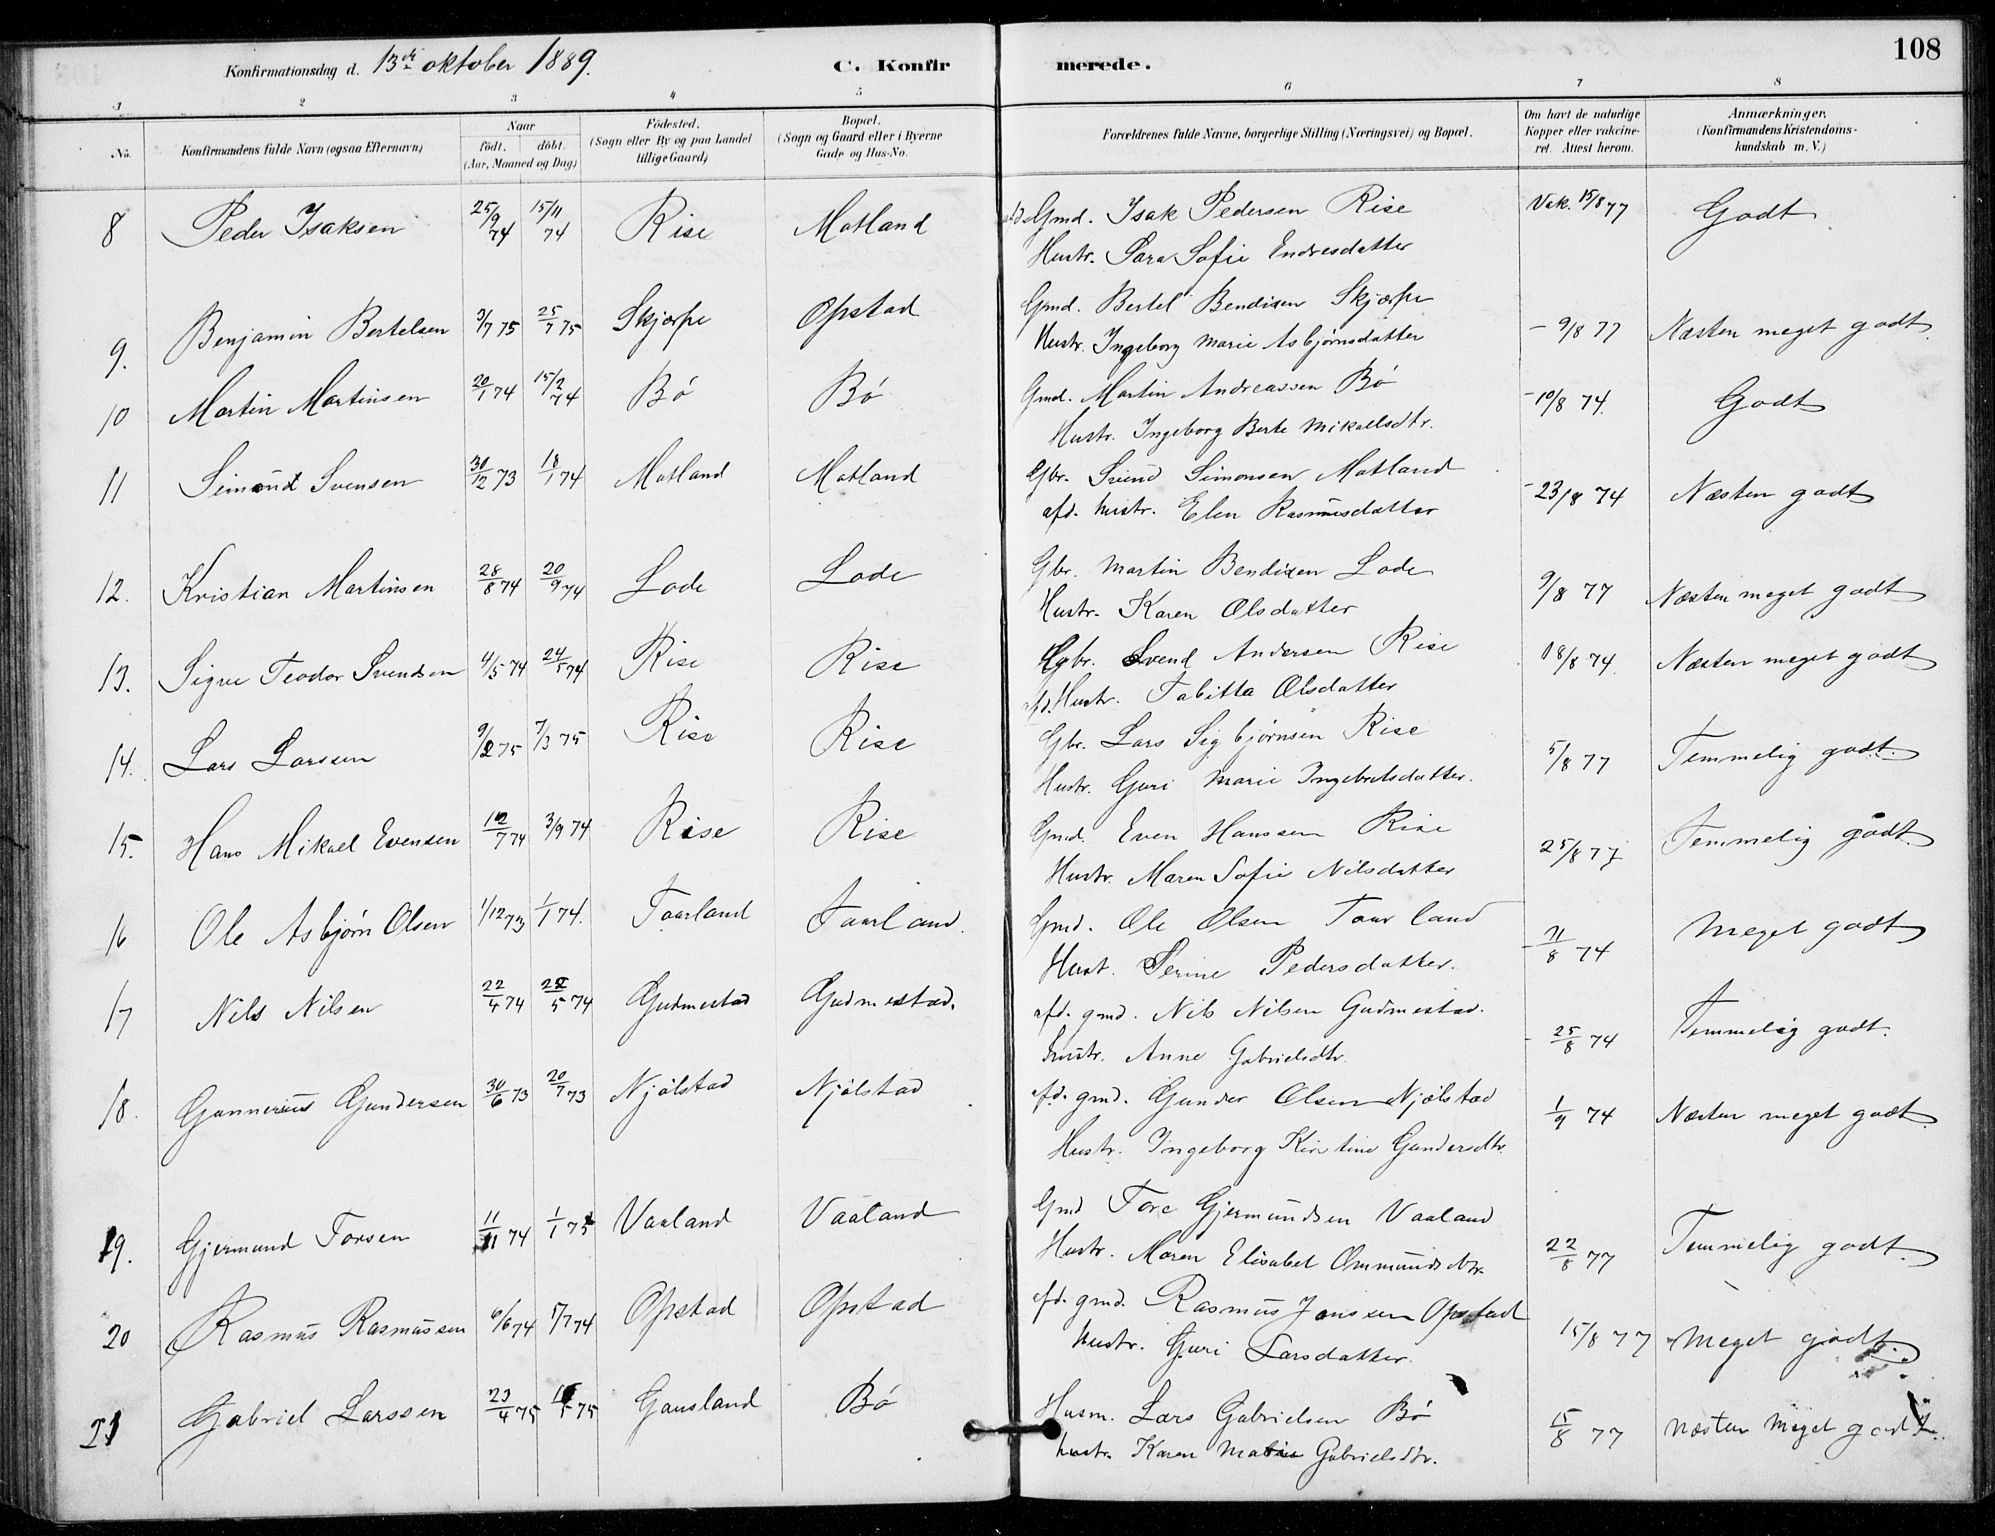 Konfirmationsdag d. 13de oktober 1889. C. Konfir merede. 108
1 2 3 4 5 6 7 8
No. Konfirmandens fulde Navn (ogsaa Efternavn) Naar født. døbt. (Aar, Maaned og Dag) Fødested. (Sogn eller By og paa Landet tillige Gaard) Bopæl. (Sogn og Gaard eller i Byerne Gade og Hus-No. Forældrenes fulde Navne, borgerlige Stilling (Næringsvei) og Bopæl. Om havt de naturlige Kopper eller vakcineret. Attest herom. Anmærkninger. (Konfirmandens Kristendomskundskab m. V.)
8 Peder Isaksen 25/9 74 15/11 74 Rise Motland afd. Gmd. Isak Pedersen Rise Vak. 15/8 77 Godt
Hustr. Sara Sofie Endresdatter
9. Benjamin Bertelsen 3/7 75 25/7 75 Skjærpe Opstad Gmd. Bertel Bendixen Skjærpe – 9/8 77 Næsten meget godt
Hustr. Ingeborg Marie Asbjørnsdatter
10 Martin Martinsen 20/1 74 15/2 74 Bø Bø Gmd. Martin Andreassen Bø – 10/8 74. Godt
Hustr. Ingeborg Berte Mikaelsdtr.
11 Simond Svensen 30/12 73 18/1 74 Motland Motland Gbr. Svend Simonsen Motland – 23/8 74 Næsten godt
afd. hustr. Elen Rasmusdatter
12. Kristian Martinsen 28/8 74 20/9 74 Lode Lode Gbr. Martin Bendixen Lode 9/8 77 Næsten meget godt
Hustr. Karen Olsdatter
13. Sigve Teodor Svendsen 4/5 74 24/5 74 Rise Rise Gbr. Svend Andersen Rise 18/8 74. Næsten meget godt
afd. Hustr. Tabitta Olsdatter
14. Lars Larssen 9/2 75 7/3 75 Rise Rise Gbr. Lars Sigbjørnsen Rise 5/8 77 Temmelig godt.
Hustr. Guri Marie Ingebretsdatter.
15. Hans Mikael Evensen 12/7 74 3/9 74 Rise Rise Gmd. Even Hanssen Rise 25/8 77 Temmelig godt.
Hustr. Maren Sofie Nilsdatter
16 Ole Asbjørn Olsen 1/12 73 1/1 74. Taarland Taarland. Gmd. Ole Olsen Taarland – 11/8 74 Meget godt
Hust. Serine Pedersdatter.
17 Nils Nilsen 22/4 74 22/5 74 Gudmestad Gudmestad. afd. gmd. Nils Nilsen Gudmestad. – 25/8 74 Temmelig godt.
hustr. Anne Gabrielsdtr.
18. Gunnerius Gundersen 30/6 73 20/7 73 Njølstad Njølstad afd. gmd. Gunder Olsen Njølstad 1/9 74 Næsten meget godt
Hustr. Ingeborg Kirstine Gundersdtr.
19. Gjermund Torsen 11/11 74 1/1 75 Vaaland Vaaland Gmd Tore Gjermundsen Vaaland 22/8 77 Temmelig godt.
Hustr. Maren Elisabet Ommundsdtr.
20 Rasmus Rasmussen 6/6 74 5/7 74 Opstad Opstad afd. gmd. Rasmus Jonssen Opstad 15/8 77 Meget godt.
hustr. Guri Larsdatter.
21 Gabriel Larssen 23/4 75 75 Gausland Bø Husm. Lars Gabrielsen Bø 15/8 77 Næsten meget godt.
hustr. Karen Malie Gabrielsdtr.